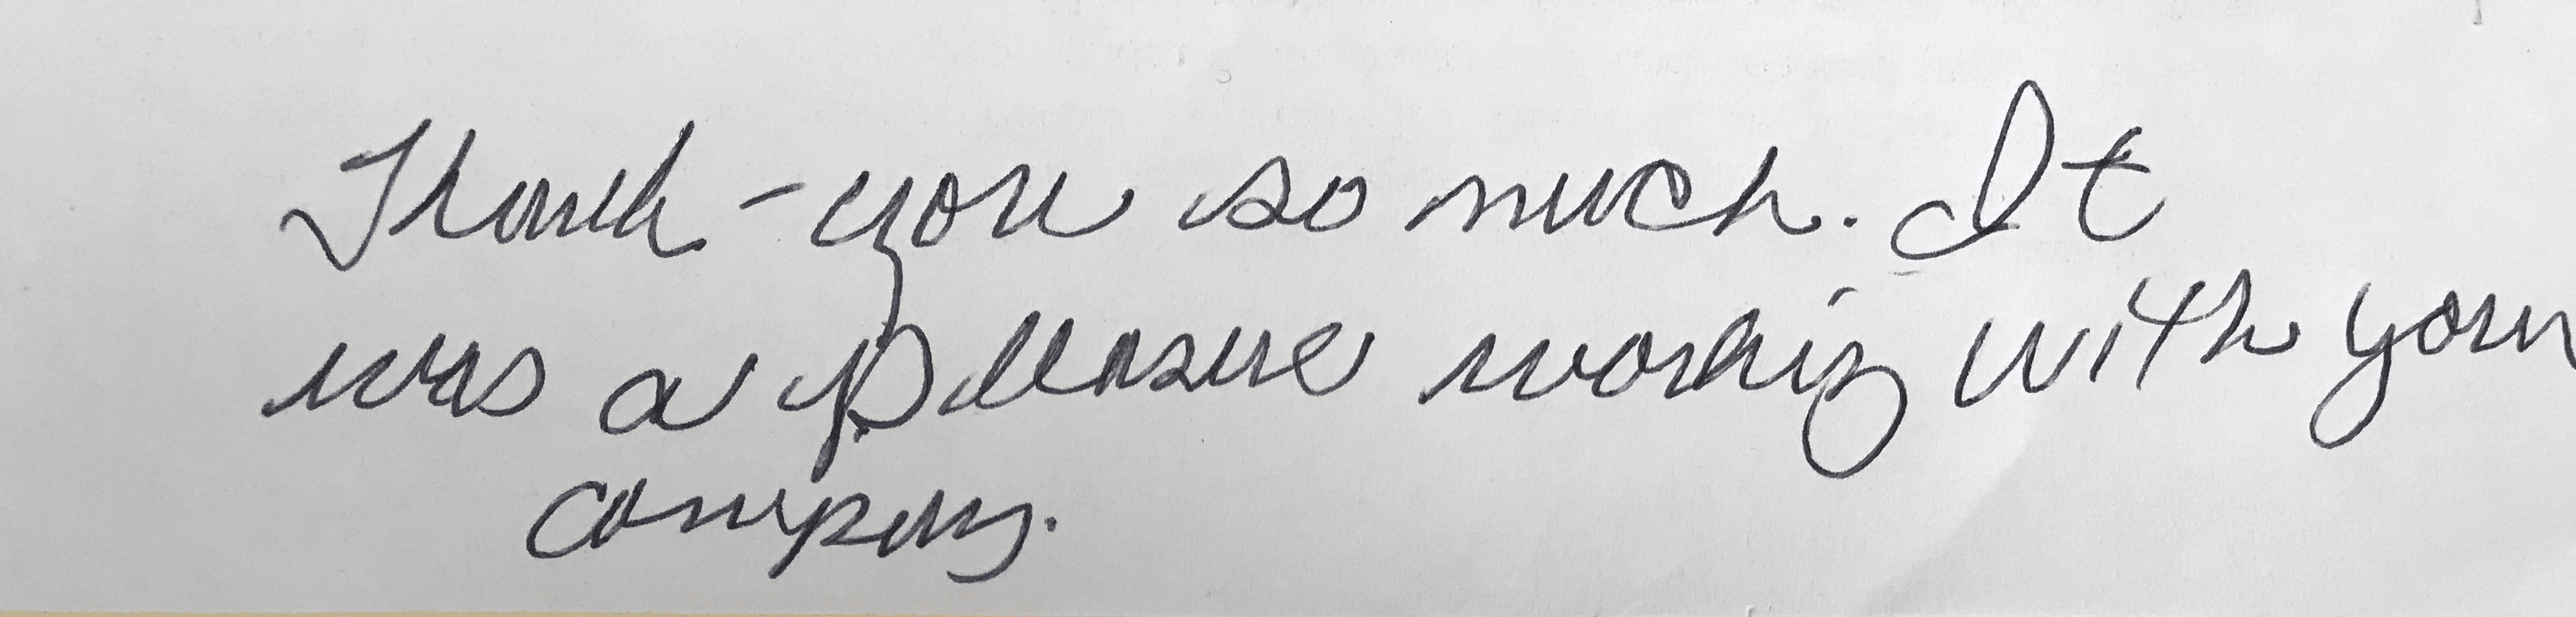 Thank-you so much. It
was a pleasure working with your
company.